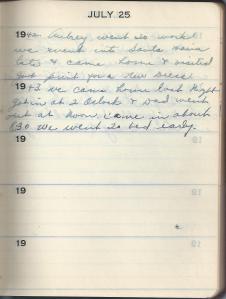 JULY 25
1942 Aubrey went to work
we went into Santa Maria
later & came home & visited
got you a new dress
1943 we came home last night
got in at 2 Oclock & Dad went
out at Noon came in about
8:30 we went to bed early.
19
19
19